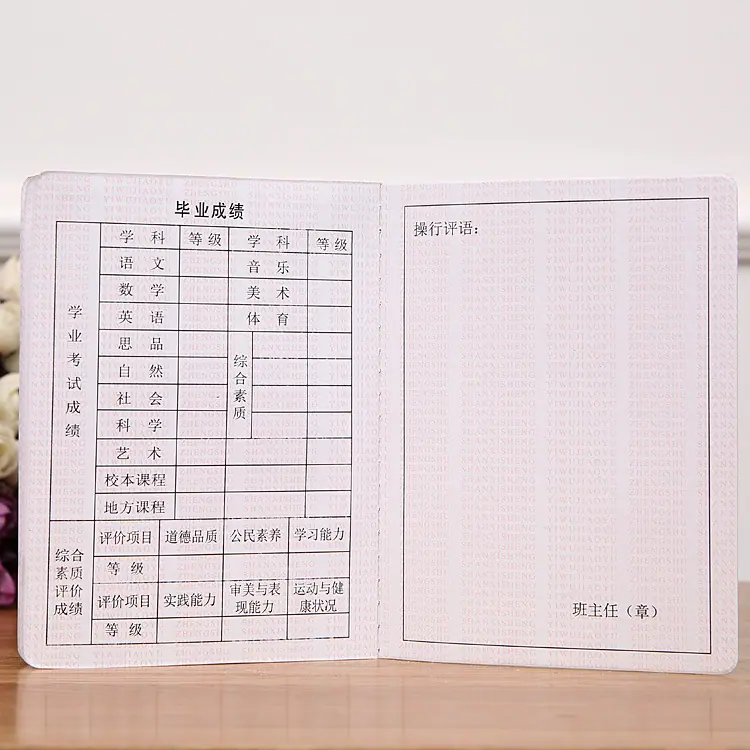 毕业成绩
学业考试成绩
学 科 等 级 学 科 等 级
语 文 音 乐
数 学 美 术
英 语 体 育
思 品 综合素质
自 然
社 会
科 学
艺 术
校本课程
地方课程
综合素质评价成绩
评价项目 道德品质 公民素养 学习能力
等 级
评价项目 实践能力 审美与表现能力 运动与健康状况
等 级
操行评语：
班主任（章）